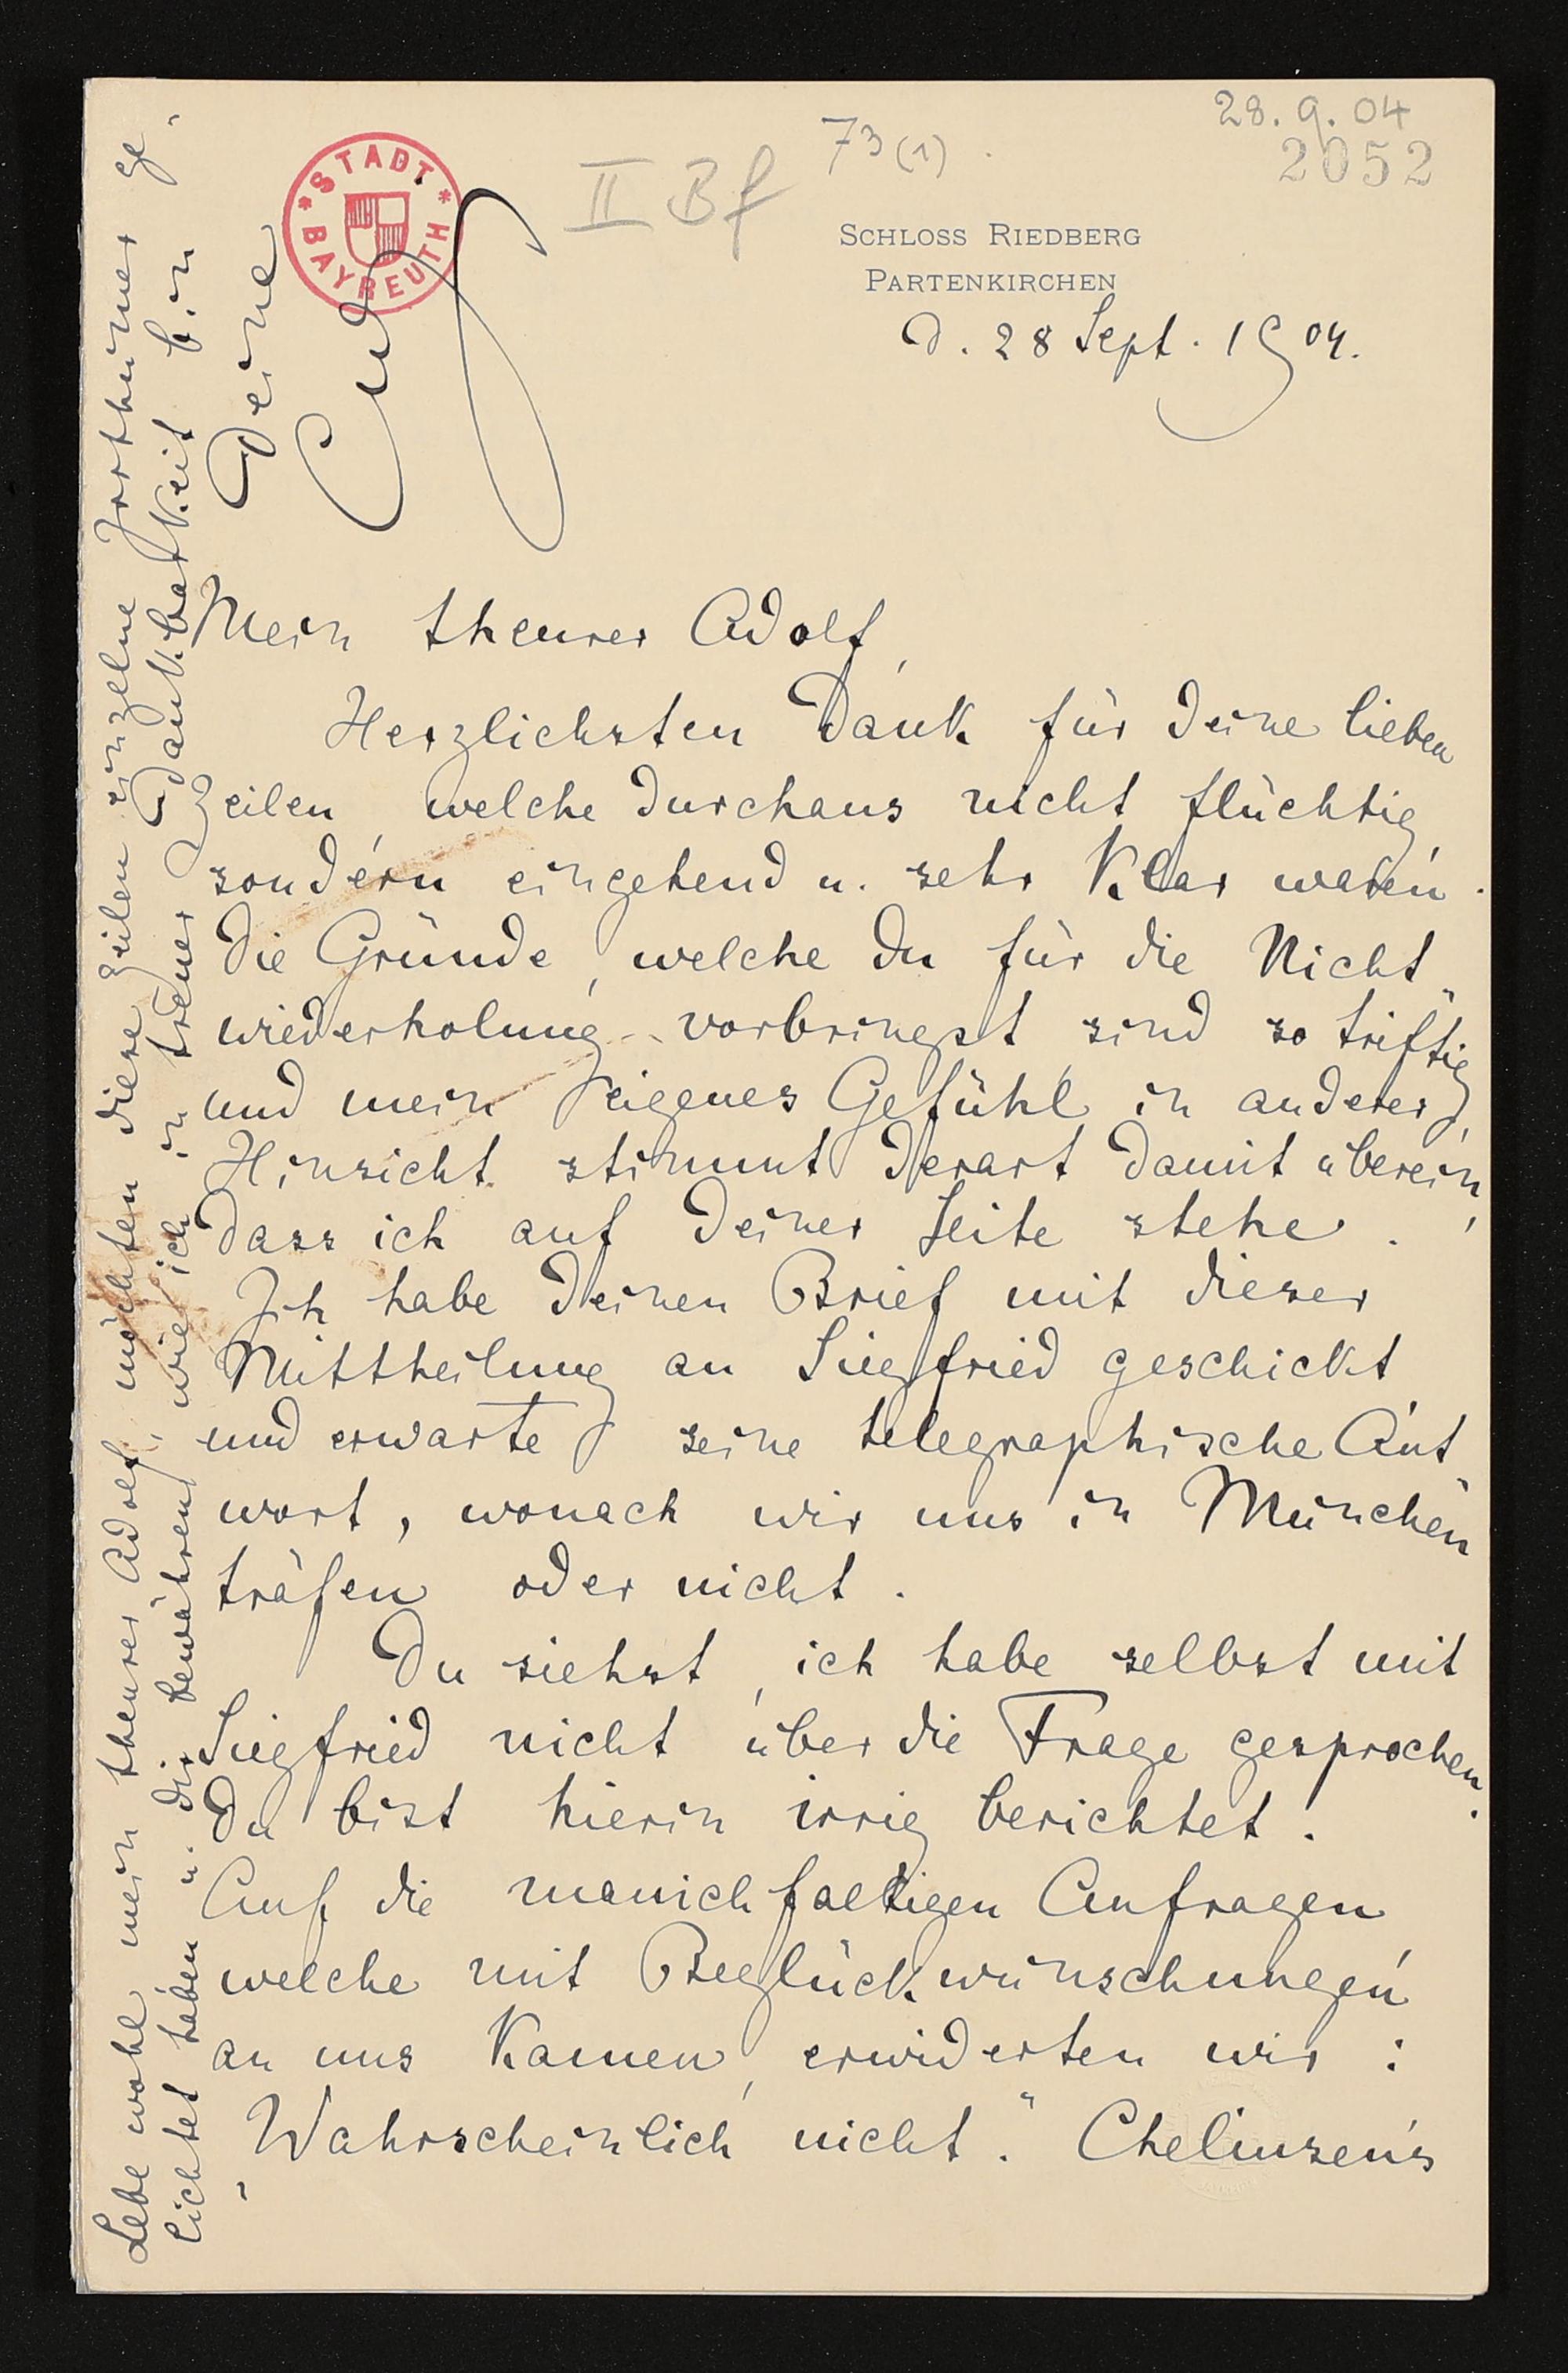 28.9.04
73(1).
2052
II Bf
STADT BAYREUTH
SCHLOSS RIEDBERG
PARTENKIRCHEN
d. 28 Sept. 1904.
Mein theurer Adolf,
Herzlichsten Dank für deine lieben
Zeilen, welche durchaus nicht flüchtig,
sondern eingehend u. sehr klar waren.
Die Gründe, welche du für die Nicht„
wiederholung vorbringst sind so triftig
und mein eigenes Gefühl in anderer
Hinsicht stimmt derart damit überein,
dass ich auf deiner Seite stehe.
Ich habe deinen Brief mit dieser
Mittheilung an Siegfried geschickt
und erwarte seine telegraphische Ant„
wort, wonach wir uns in München
träfen oder nicht.
Du siehst, ich habe selbst mit
Siegfried nicht über die Frage gesprochen.
Du bist hierin irrig berichtet.
Auf die manichfaltigen Anfragen
welche mit Beglückwünschungen
an uns kamen, erwiderten wir:
„Wahrscheinlich nicht." Chelinsen's
Lebe wohl mein theurer Adolf, möchten diese Zeilen einzelne Irrthümer ge„
lichtet haben u. dir bewähren, wie ich in treuer Dankbarkeit bin
Deine